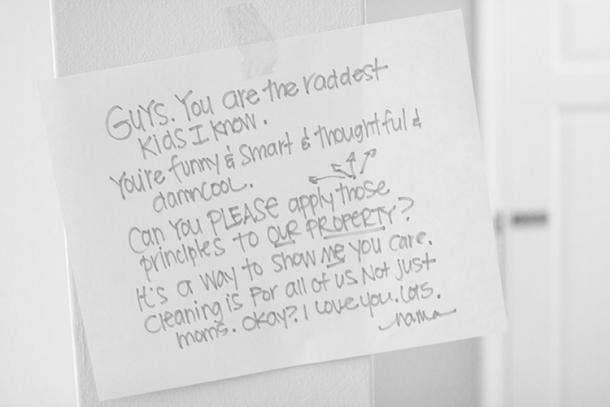 GUYS. YOU are the raddest
Kids I know.
You're funny & smart & thoughtful &
damn cool.
Can YOU PLEASE apply those
principles to OUR PROPERTY?
It's a way to show me you care.
Cleaning is for all of us. Not just
moms. Okay? I love you. Lots.
mama